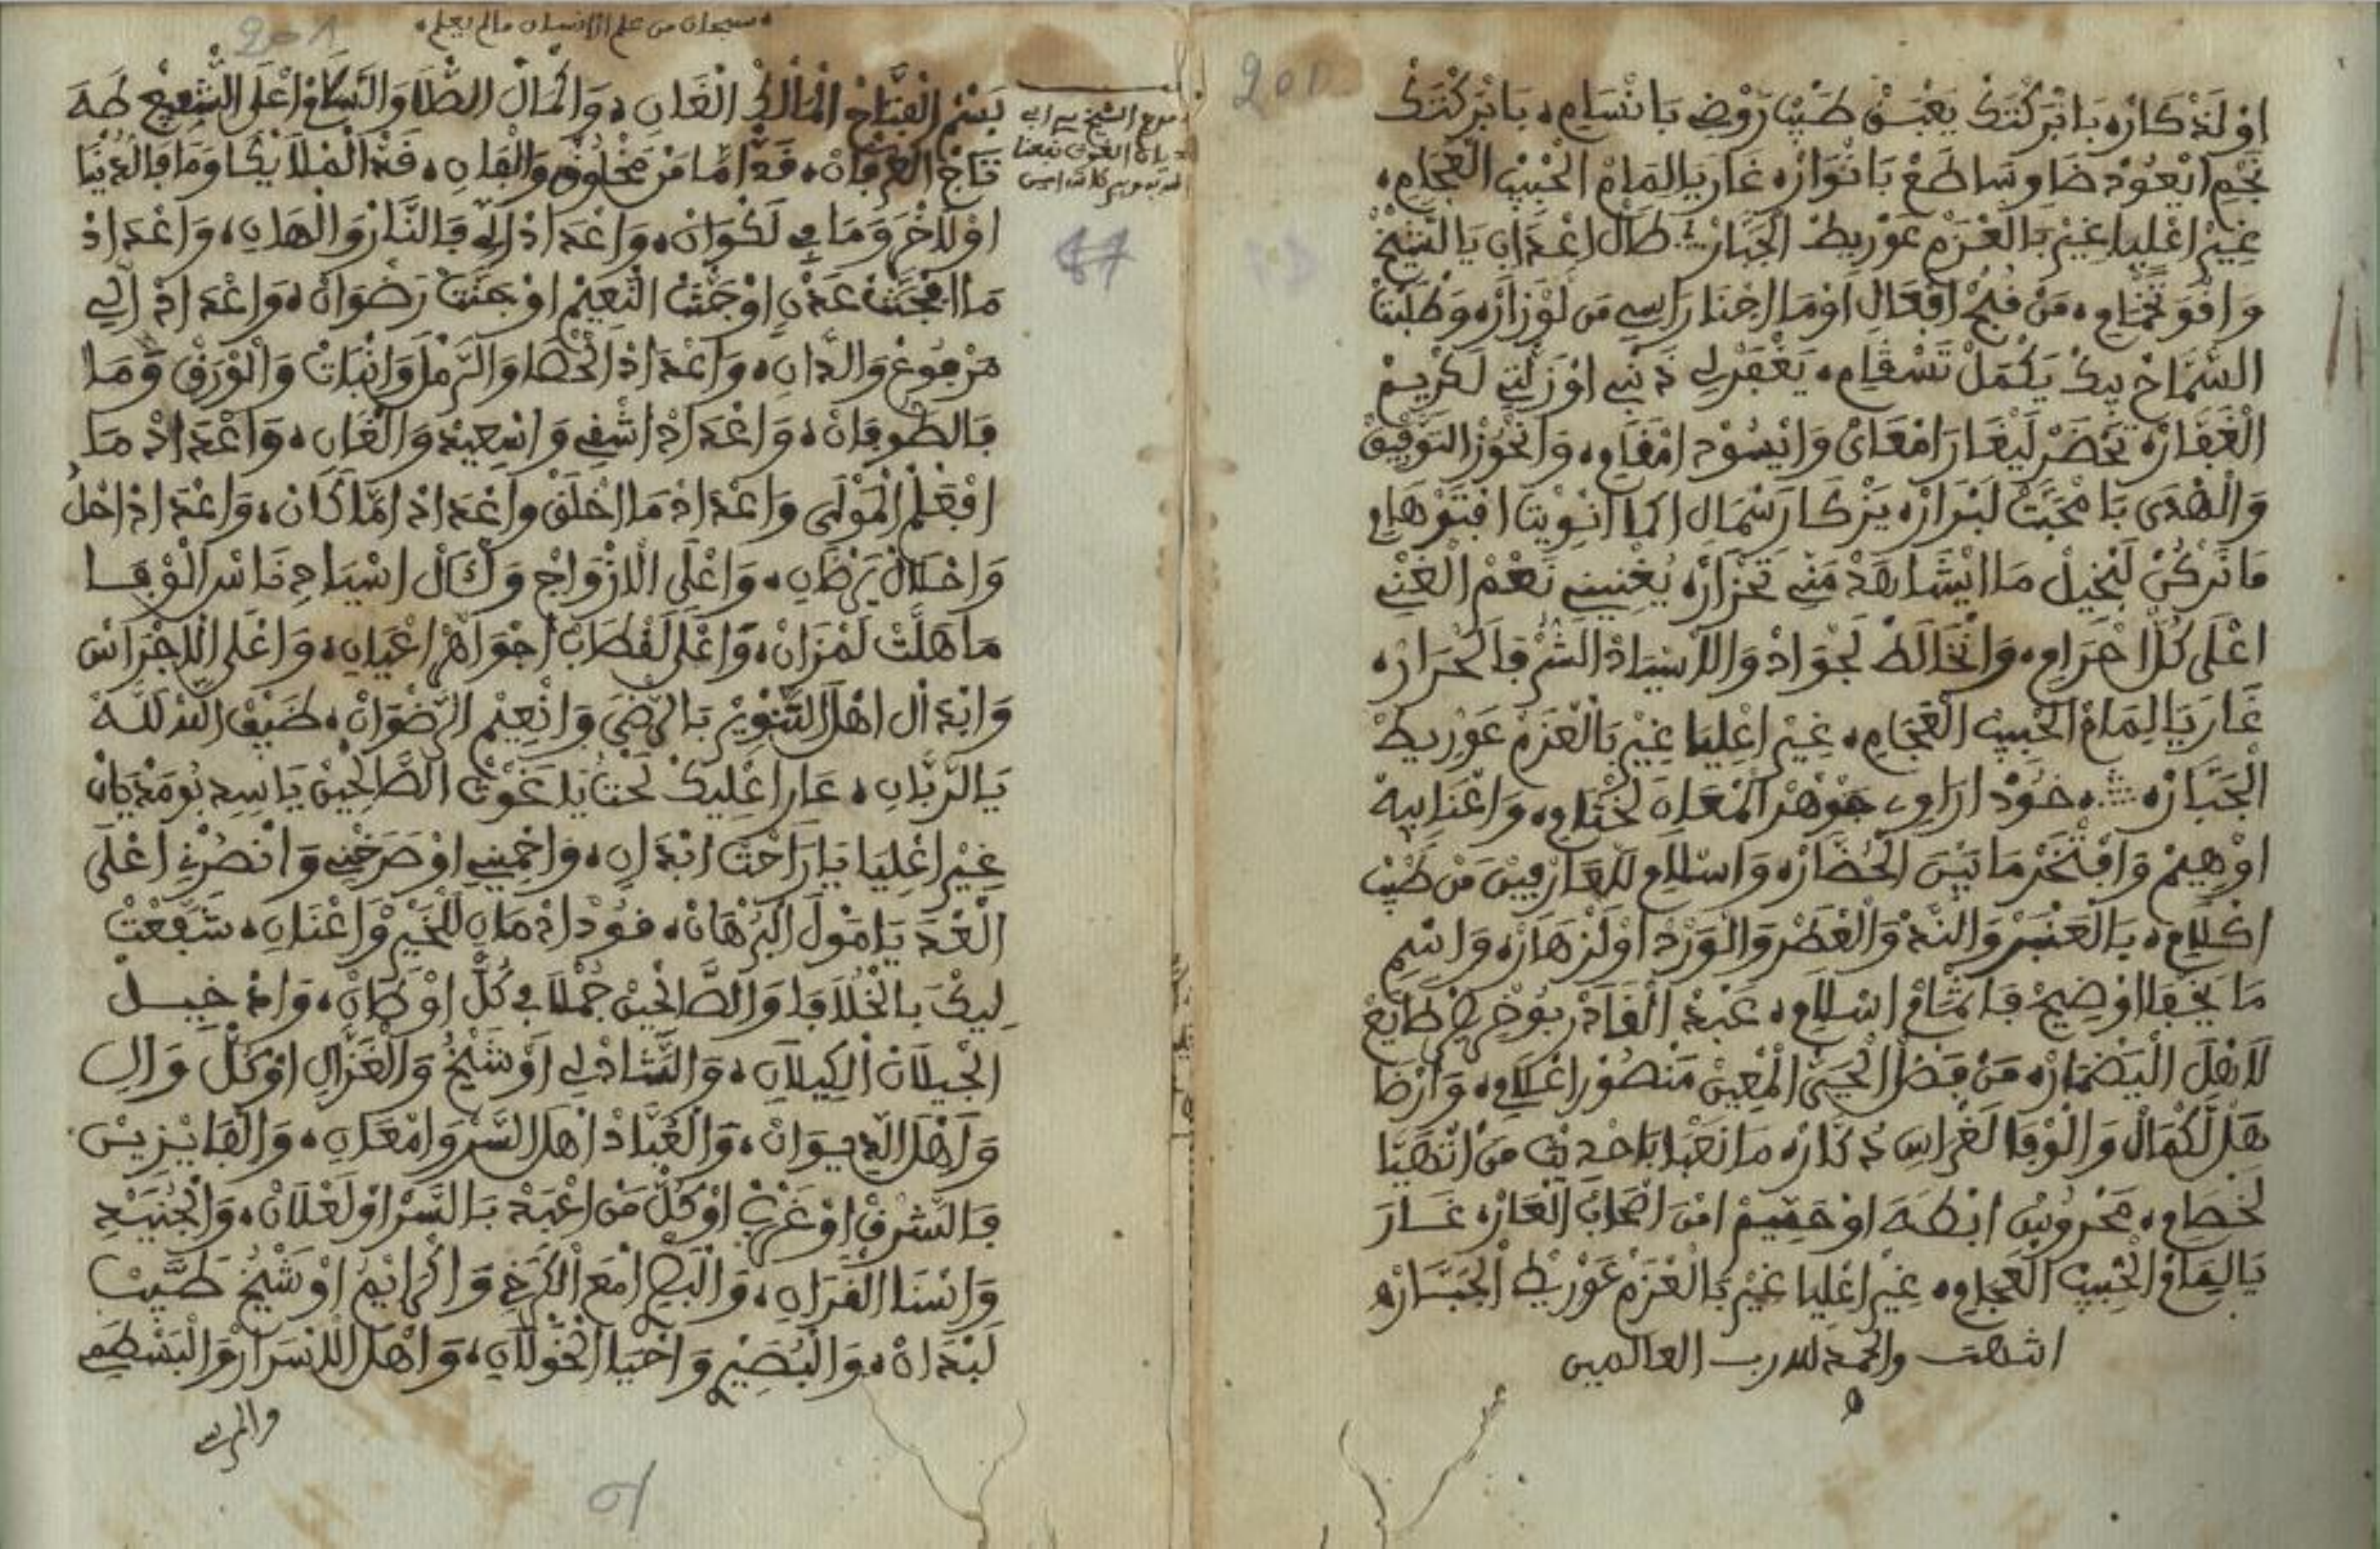 اوْلَذْكَارْه بَابَرْكْتَكْ يَعْبَقْ طَيْبْ رَوْضِ بَانْسَامِ، بَابَرْكْتَكْ
نَجْمِ ايْعُوْدْ ضَاوِ سَاطَعْ بَانْوَارْه غَارَ يَالِمَامْ الْحْبِيبْ الْعْجَامِ،
غِيْرْ اعْلِيَا غِيْرْ بَالْعَزْم عَوْرِيطْ الْجَبَّارْ طَالْ اعْدَابِ يَا الشَّيْخْ
وَاقْوَ نَخْمَامِ، مَنْ قُبْحْ افْعَالِ اوْمَا اجْنَا رَاسِي مَن لَوْزَارْه وَطْلَبْتْ
السَّمَاحْ بِيكْ يَكْمَلْ تَسْقَامِ، يَغْفَرْلِي ذَنْبِي اوْزَلْتِي لَكْرِيمْ
الْغَفَّارْه تَحْضَرْ لِيغَارَا مْعَايْ وَايْسُوْد امْقَامِ، وَانْحُوْزْ التَّوْفِيقْ
وَالْهْدَى بَامْحَبَّتْ لَبْرَارْه يَزْكَا رَسْمَالِ اكْمَا انْوِيتْ ابْتَوْهَامِ
مَا نَرْكُنْ لَبْخِيلْ مَا ايْشَاهَدْ مَنِّي تَحْزَارْه يُغْنِينِي نَعْمْ الْغْنِي
اعْلَى كُلّْ احْرَامِ، وَانْخَالَطْ لَجْوَادْ وَالْاسْيَادْ الشُّرْفَا لَحْرَارْه
غَارَ يَالِمَامْ الْحْبِيبْ الْعْجَامِ، غِيْرْ اعْلِيَا غِيْرْ بَالْعَزْمْ عَوْرِيطْ
الْجَبَّارْه خُوْدْ ارَاوِي جَوْهَرْ الْمْعَانِ لَخْتَامِ، وَاعْنَابِيهْ
اوْهِيمْ وَافْتَخَرْ مَا بَيْنَ الْحُضَّارْه وَاسْلَامِ لَلْعَارْفِينْ مَن طَيْبْ
اكْلَامِ، بَالْعَنْبَرْ وَالنَّدّْ وَالْعْطَرْ وَالْوَرْدْ اوْلَزْهَارْه وَاسْمِ
مَا يَخْفَا اوْضِيحْ فَاتْمَامْ اسْلَامِ، عَبْدْ الْقَادَرْ بُوْخْرِيصْ طَايَعْ
لَاهْلَ الْبَضْمَارْه مَنْ فَضْلْ الْحَيّْ الْمْعِينْ مَنْصُوْر اعْلَامِ، وَارْضَا
هَلْ لَكْمَالْ وَالْوْفَا لَغْرَاسِ ذَكَّارْه مَا نَعْبَا بَاحْدِيثْ مَنْ اتْهَيَّا
لَخْصَامِ، مَحْرُوْسْ ابْطَهَ اوْحَيْهُمْ امْنَ اصْحَابْ الْعَارْه غَارَ
يَالِمَامْ الْحْبِيبْ الْعْجَامِ، غِيْرْ اعْلِيَا غِيْرْ بَالْعَزْمْ عَوْرِيطْ الْجَبَّارْه
انتهت والحمد لله رب العالمين
سبحان من علم الانسان مالم يعلم
بَسْمْ الْفَتَّاحْ الْمَالَكْ الْغَانِ، وَاكْمَالْ الصّْلَا وَالسّْلَامْ اعْلَى الشّْفِيعْ طَهَ
تَاجْ الْعَرْفَانْ، قَدّْ امَّا مَنْ مَخْلُوْقْ وَالْفَانِ، قَدّْ الْمْلَايْكَا وَمَا فَالدُّنْيَا
اوْلَاخْرَ وَمَا فِي لَكْوَانْ، وَاعْدَادْ الِّي فَالنَّارْ وَالْهَانِ، وَاعْدَادْ
مَا افْجَنّْتْ عَدْنِ اوْجَنّْتْ النّْعِيمْ اوْجَنّْتْ رَضْوَانْ، وَاعْدَادْ الِّي
مَرْفُوْعْ وَالدَّانِ، وَاعْدَادْ الْحْصَا وَالرّْمَلْ وَانْبَاتْ وَالْوْرَقْ وَمَا
فَالطُّوفَانْ، وَاعْدَادْ اشْقِي وَاسْعِيدْ وَالْغَانِ، وَاعْدَادْ مَا
افْعَلْمْ الْمَوْلَى وَاعْدَادْ مَا اخْلَقْ وَاعْدَادْ امَّا كَانْ، وَاعْدَادْ احْلُ
وَاحْلَالْ يَرْضَانِ، وَاعْلَى الْازْوَاجْ وَالْآلْ اسْيَادِ نَاسْ الْوْفَا
مَا هَلَّتْ لَمْزَانْ، وَاعْلَى لَقْطَابْ اجْوَاهَرْ اعْيَانِ، وَاعْلَى الْاجْرَاسْ
وَابْدَالْ اهْلَ التَّنْوِيرْ بَالرّْضَى وَانْعِيمْ الرَّضْوَانْ، ضَيْفْ اللَّه لَلَّه
يَا الرَّبَّانِ، عَارَ اعْلِيكْ لَحْتْ يَا غَوْتْ الصَّالْحِينْ يَا سِيدِ بُومَدْيَانْ
غِيْرْ اعْلِيَا يَا رَاحْتْ ابْدَانِ، وَاحْمِينِي اوْصَرَّخْنِي وَانْصُرْنِي اعْلَى
الْعْدَ يَا مُولَ الْبُرْهَانْ، فُوْدْ ازْمَانِ لَلْخَيْرْ وَاغْنَانِ، شَفَّعْتْ
لِيكْ بَالْخُلَافَا وَالصَّالْحِينْ جُمْلَا فِي كُلّْ اوْطَانْ، وَادْخِيلْ
الْجِيلَانْ الْكِيلَانِ، وَالشَّادْلِي اوْشَيْخُ وَالْغَزَّالِ اوْكُلّْ وَالِ
وَاهْلَ الدِّيوَانْ، وَالْعُبَّادْ اهْلَ السَّرّْ وَامْعَانِ، وَالْفَايْزِينْ
فَالشَّرْقْ اوْغَرْبْ اوْكُلّْ مَنْ اعْبَدْ بَالسَّرّْ اوْلَعْلَانْ، وَالْجُنَيْدِ
وَاسْنَا الْقَرَانِ، وَالْبَصْرِ امْعَ الْكَرْخِي وَاكْرَايَمُ اوْشَيْخُ طَيَّبْ
لَبْدَانْ، وَالْبُصَيْرِ وَاحْيَا الْخُوْلَانِ، وَاهْلَ الَاسْرَارْ وَالْبَسْطَمِي